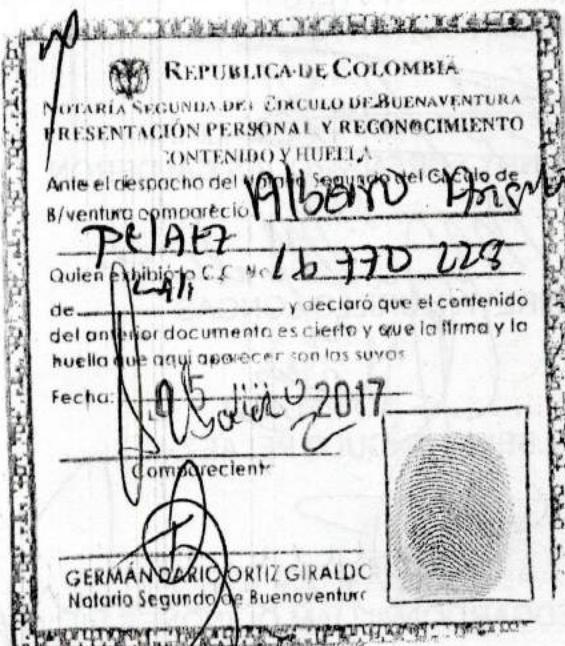 REPUBLICA DE COLOMBIA
NOTARÍA SEGUNDA DEL CIRCULO DE BUENAVENTURA
PRESENTACIÓN PERSONAL Y RECONOCIMIENTO
CONTENIDO Y HUELLA
Ante el despacho del Notario Segundo del Circulo de
B/ventura comparecio Alberto
PELAEZ
Quien exhibió la C.C. No 16 770 228
de Cali y declaró que el contenido
del anterior documento es cierto y que la firma y la
huella que aqui aparecer son las suyas
Fecha: 05 2017
Compareciente
GERMÁN DARIO ORTIZ GIRALDO
Notario Segundo de Buenaventura